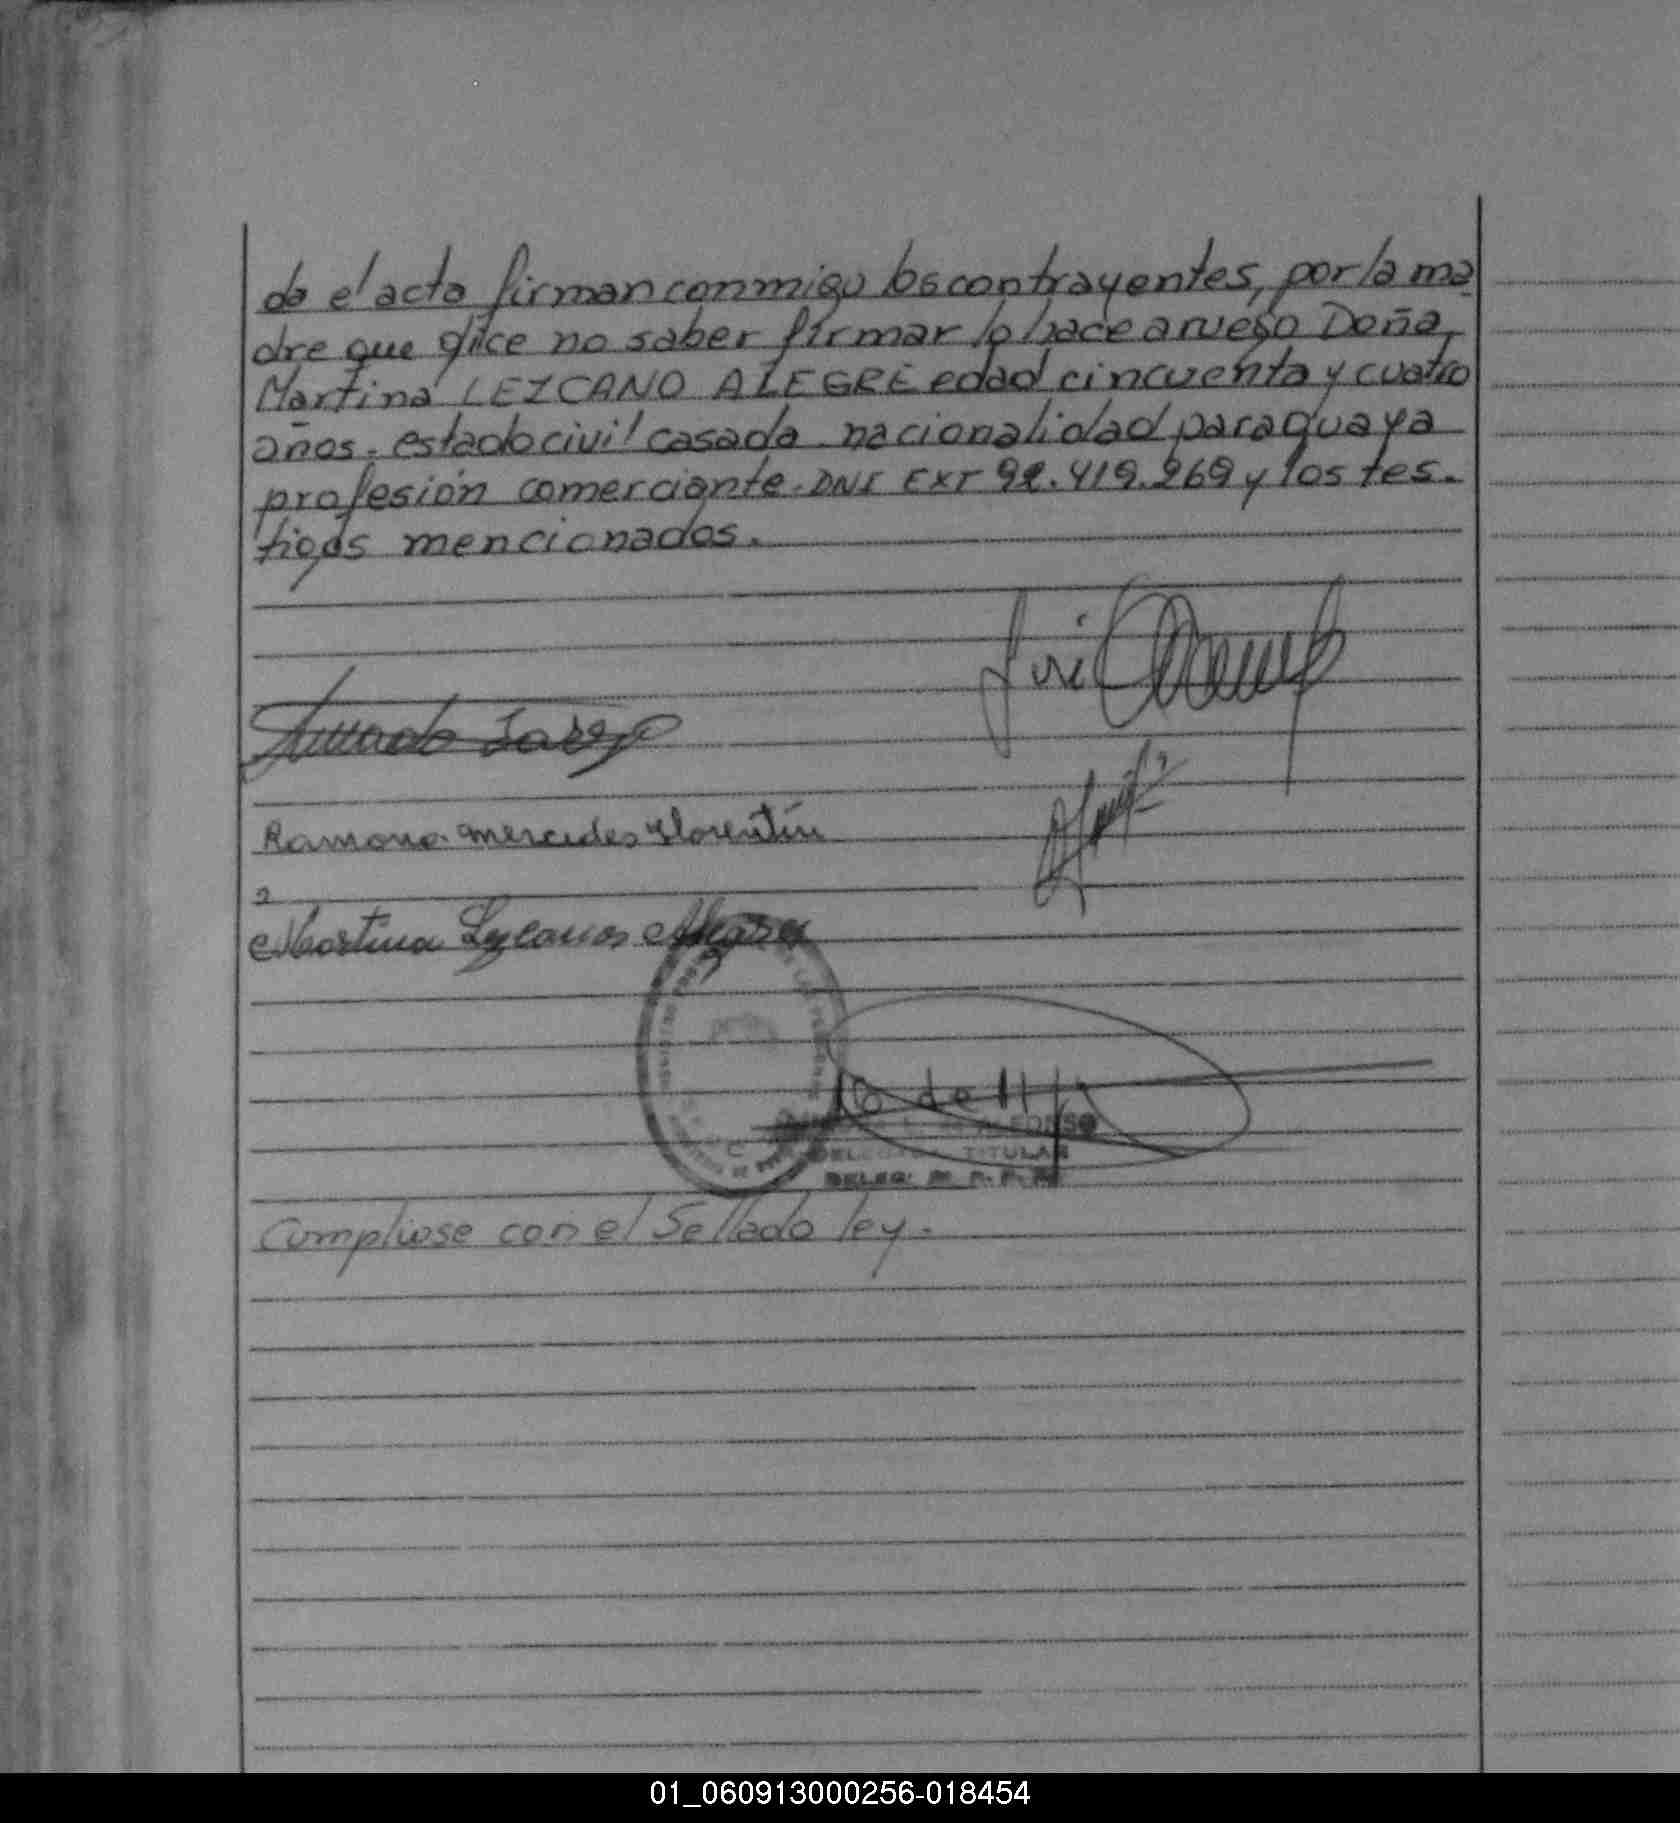 da el acta firman conmigo los contrayentes, por la ma
dre que dice no saber firmar lo hace a ruego Doña
Martina LEZCANO ALEGRE edad cincuenta y cuatro
años. estado civil casada nacionalidad paraguaya
profesión comerciante. DNI EXT 92.419.269 y los tes.
tigos mencionados.
José
Ramona Mercedes Florentín
Martina Lezcano Alegre
16 de 11
DELEGADA TITULAR
DELEG.
Compliose con el Sellado ley.
01_060913000256-018454